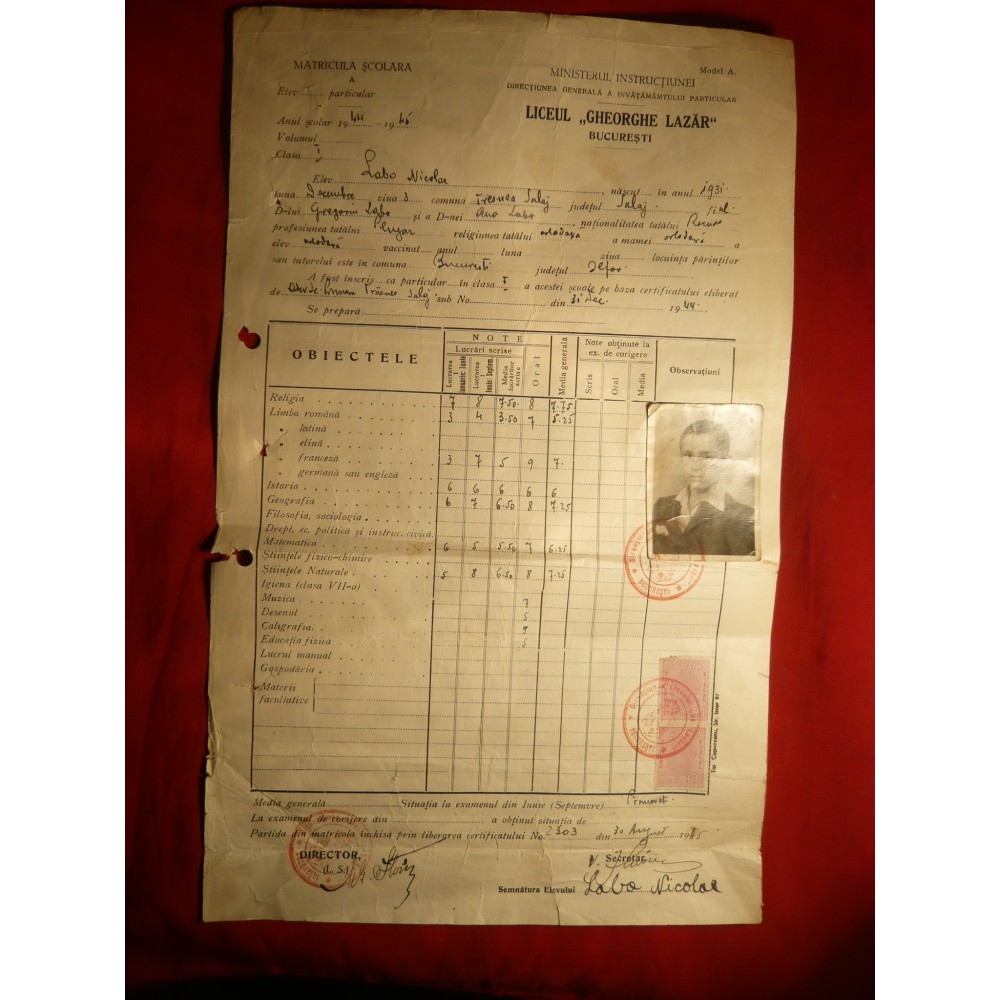 MATRICULA ȘCOLARA
A
Elev particular
Anul școlar 1944-1945
Volumul
Clasa I
Model A.
MINISTERUL INSTRUCȚIUNEI
DIRECȚIUNEA GENERALĂ A INVĂȚĂMÂNTULUI PARTICULAR
LICEUL „GHEORGHE LAZĂR"
BUCUREȘTI
Elev Labo Nicolae, născut în anul 1931
luna Decembre ziua 3 comuna Tresnea Salaj județul Salaj fiul
D-lui Gregoriu Labo și a D-nei Ana Labo, naționalitatea tatălui Română
profesiunea tatălui Plugar religiunea tatălui ortodoxa a mamei ortodoxă a
elev ortodoxă vaccinat anul luna ziua locuința părinților
sau tutorelui este in comuna București județul Ilfov
A fost inscris ca particular in clasa I a acestei școale pe baza certificatului eliberat
de Trăsnea Salaj sub No. din 31 Dec 1944
Se prepară
OBIECTELE
NOTE
Lucrări scrise
Lucrarea I Ianuarie Iunie
Lucrarea I Iunie Septem.
Media lucrărilor scrise
Oral
Media generală
Note obținute la ex. de corigere
Scris
Oral
Media
Observațiuni
Religia 7 8 7.50 8 7.75
Limba română 3 4 3.50 7 5.25
„ latină
„ elină
„ franceză 3 7 5 9 7.
„ germană sau engleză
Istoria 6 6 6 6 6
Geografia 6 7 6.50 8 7.25
Filosofia, sociologia
Drept, ec. politică și instruc. civică
Matematica 6 5 5.50 7 6.25
Științele fizico-chimice
Științele Naturale 5 8 6.50 8 7.25
Igiena (clasa VII-a)
Muzica 7
Desenul 5
Caligrafia 9
Educația fizică 5
Lucrul manual
Gospodăria
Materii
facultative
Media generală Situația la examenul din Iunie (Septemvre) Promovat
La examenul de corijere din a obținut situația de
Partida din matricola închisă prin libergrea certificatului No. 2303 din 30 August 1945
DIRECTOR,
(L. S.)
Secretar
Semnătura Elevului Labo Nicolae